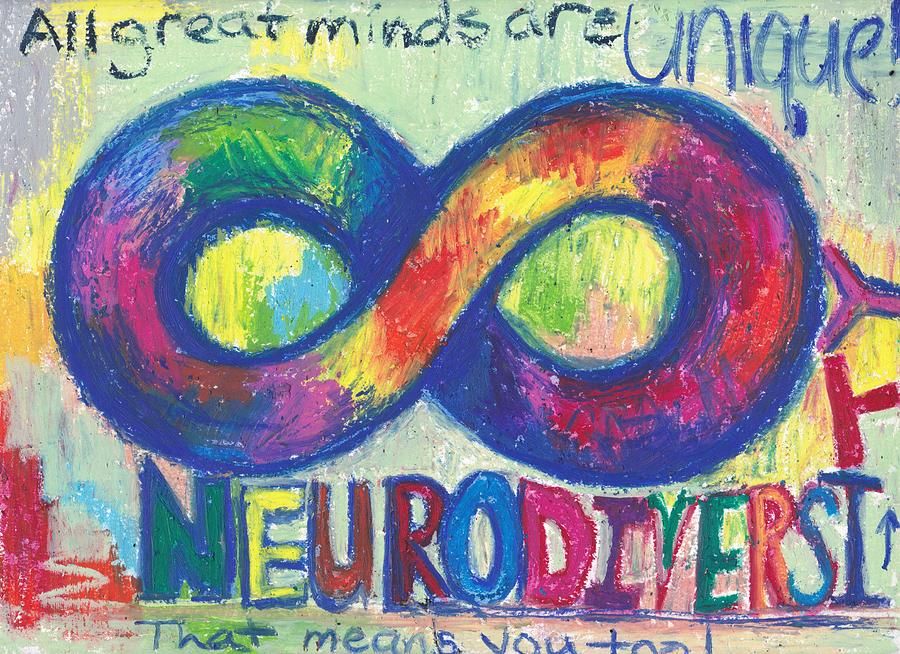 All great minds are unique!
NEURODIVERSITY
That means you too!